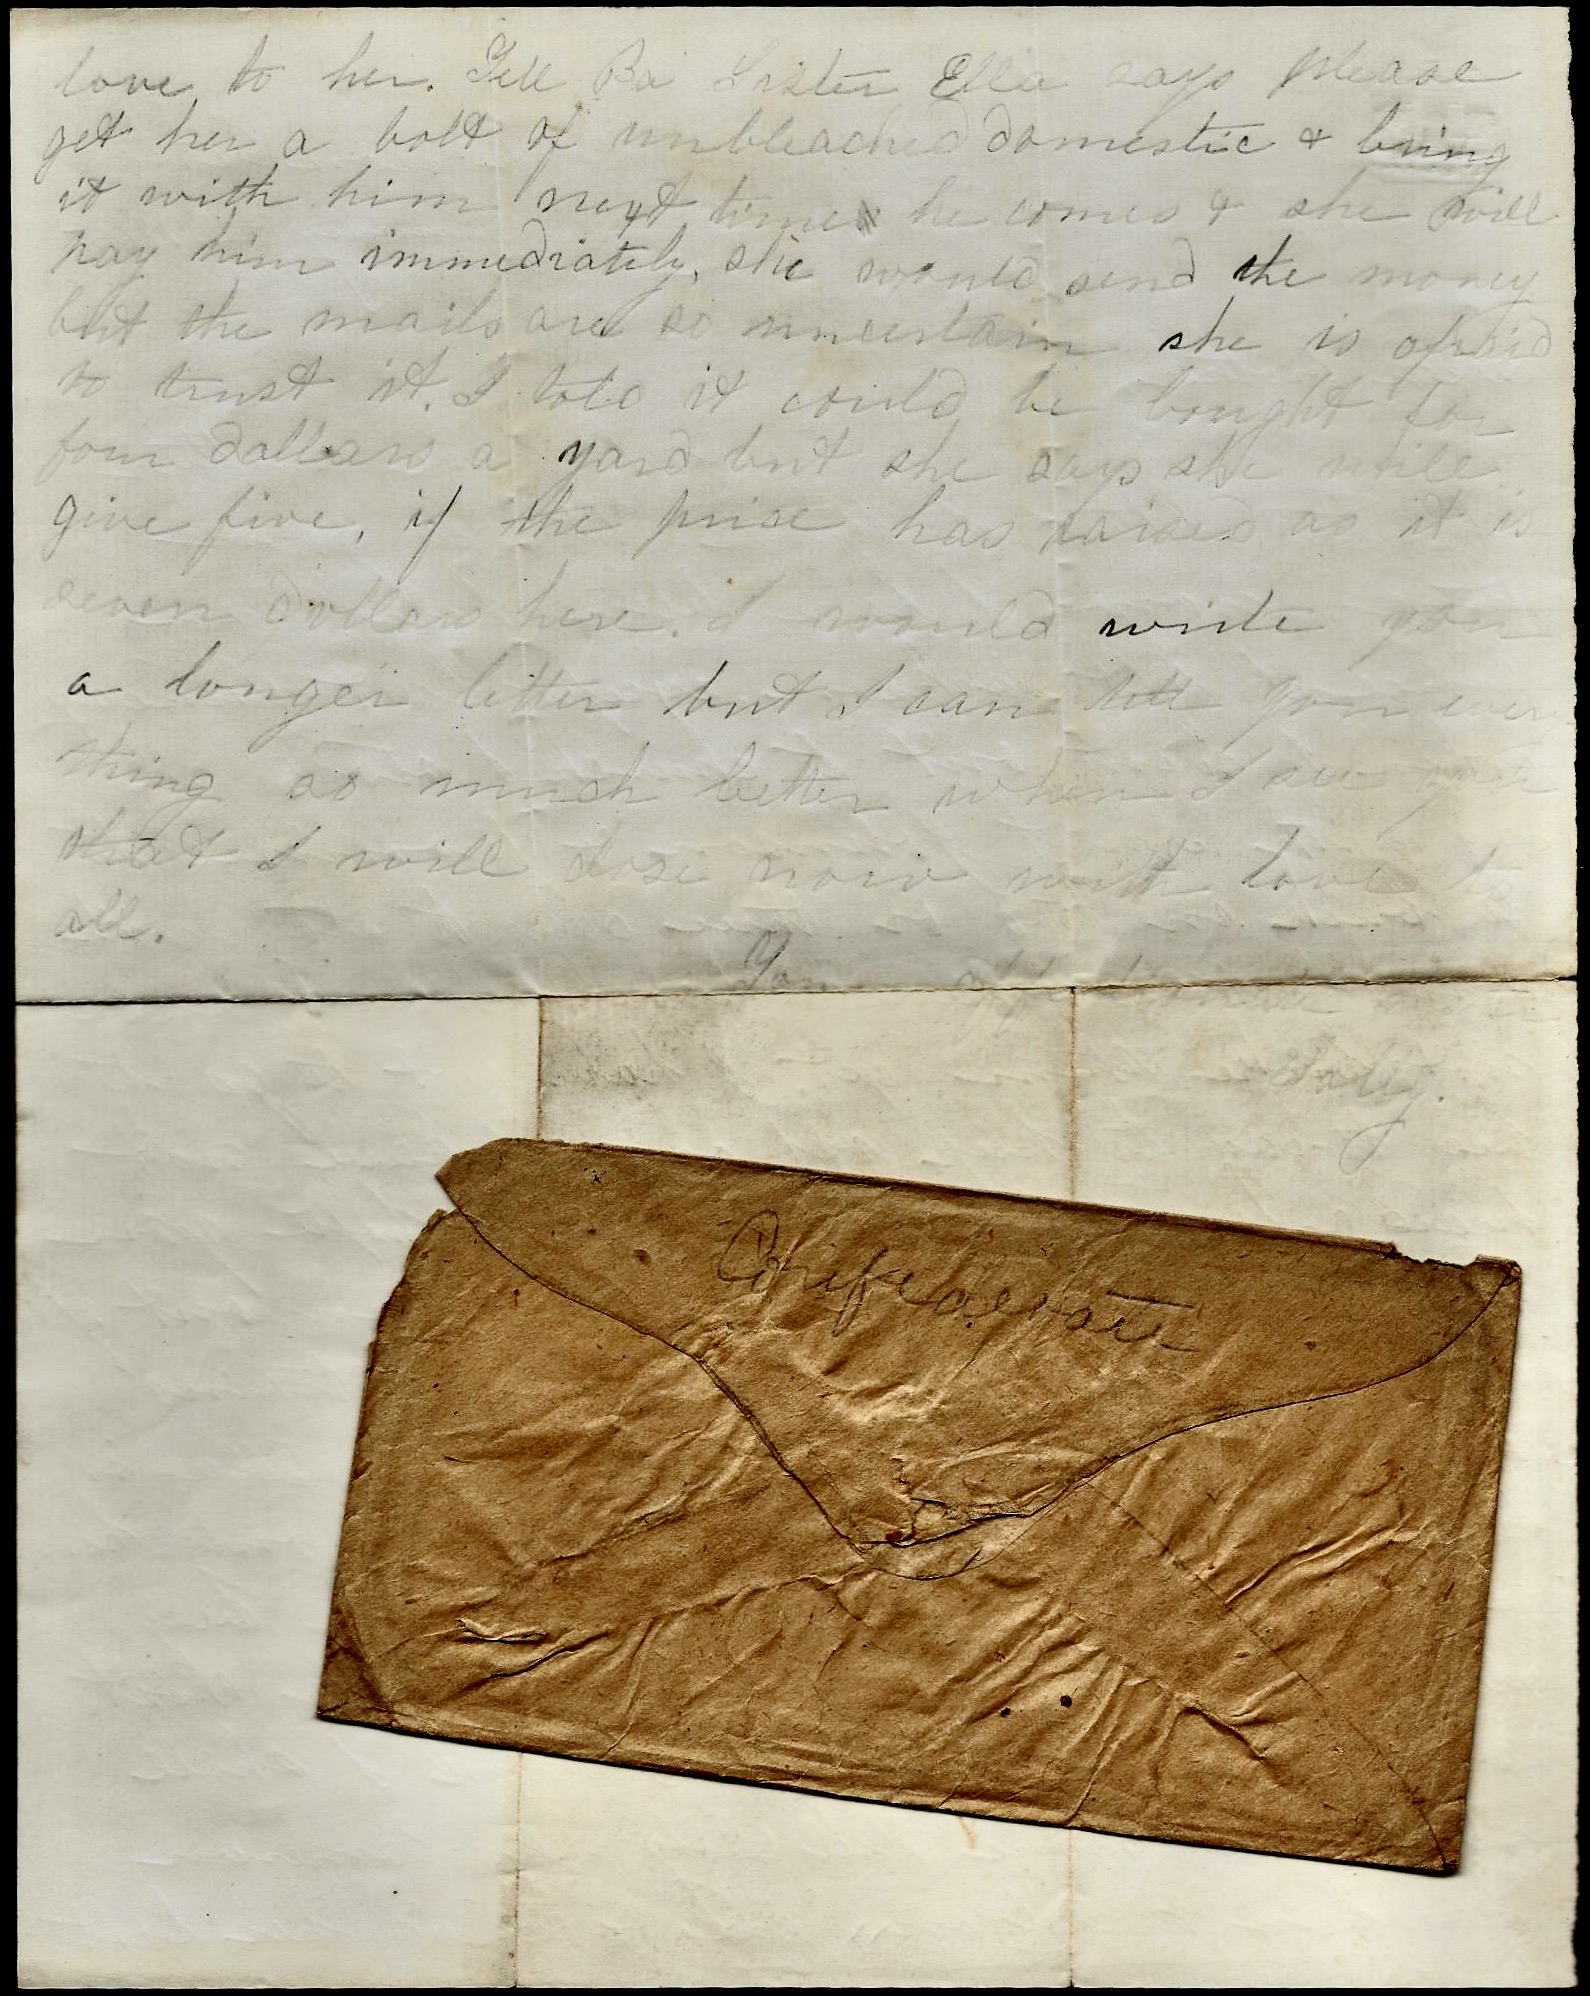 love to her. Tell Pa Sister Ella says please
get her a bolt of unbleached domestic & bring
it with him next time he comes & she will
pay him immediately, she would send the money
but the mails are so uncertain she is afraid
to trust it. I told it could be bought for
four dollars a yard but she says she will
give five, if the price has raised as it is
seven dollars here. I would write you
a longer letter but I can tell you every
thing so much better when I see you
that I will close now with love to
all.
Your affectionate
Sally.
Confederate